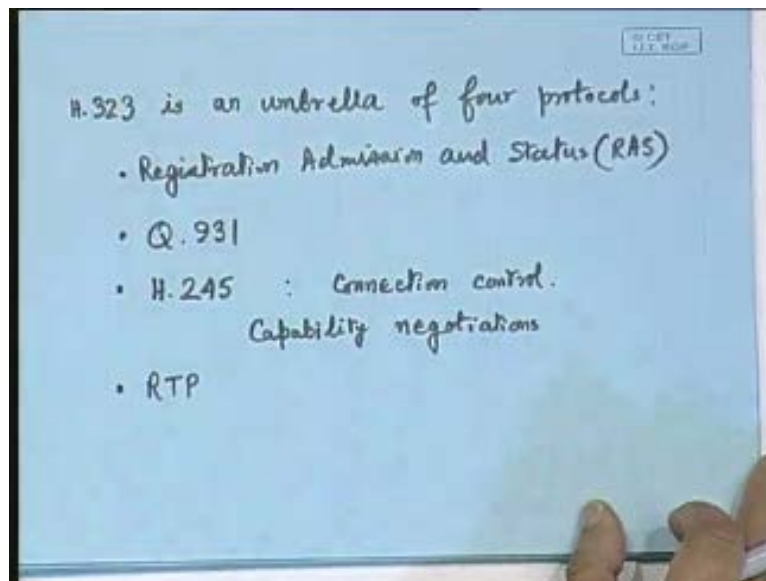 © CET
I.I.T. KGP
H.323 is an umbrella of four protocols:
• Registration Admission and Status (RAS)
• Q.931
• H.245 : Connection control.
Capability negotiations
• RTP